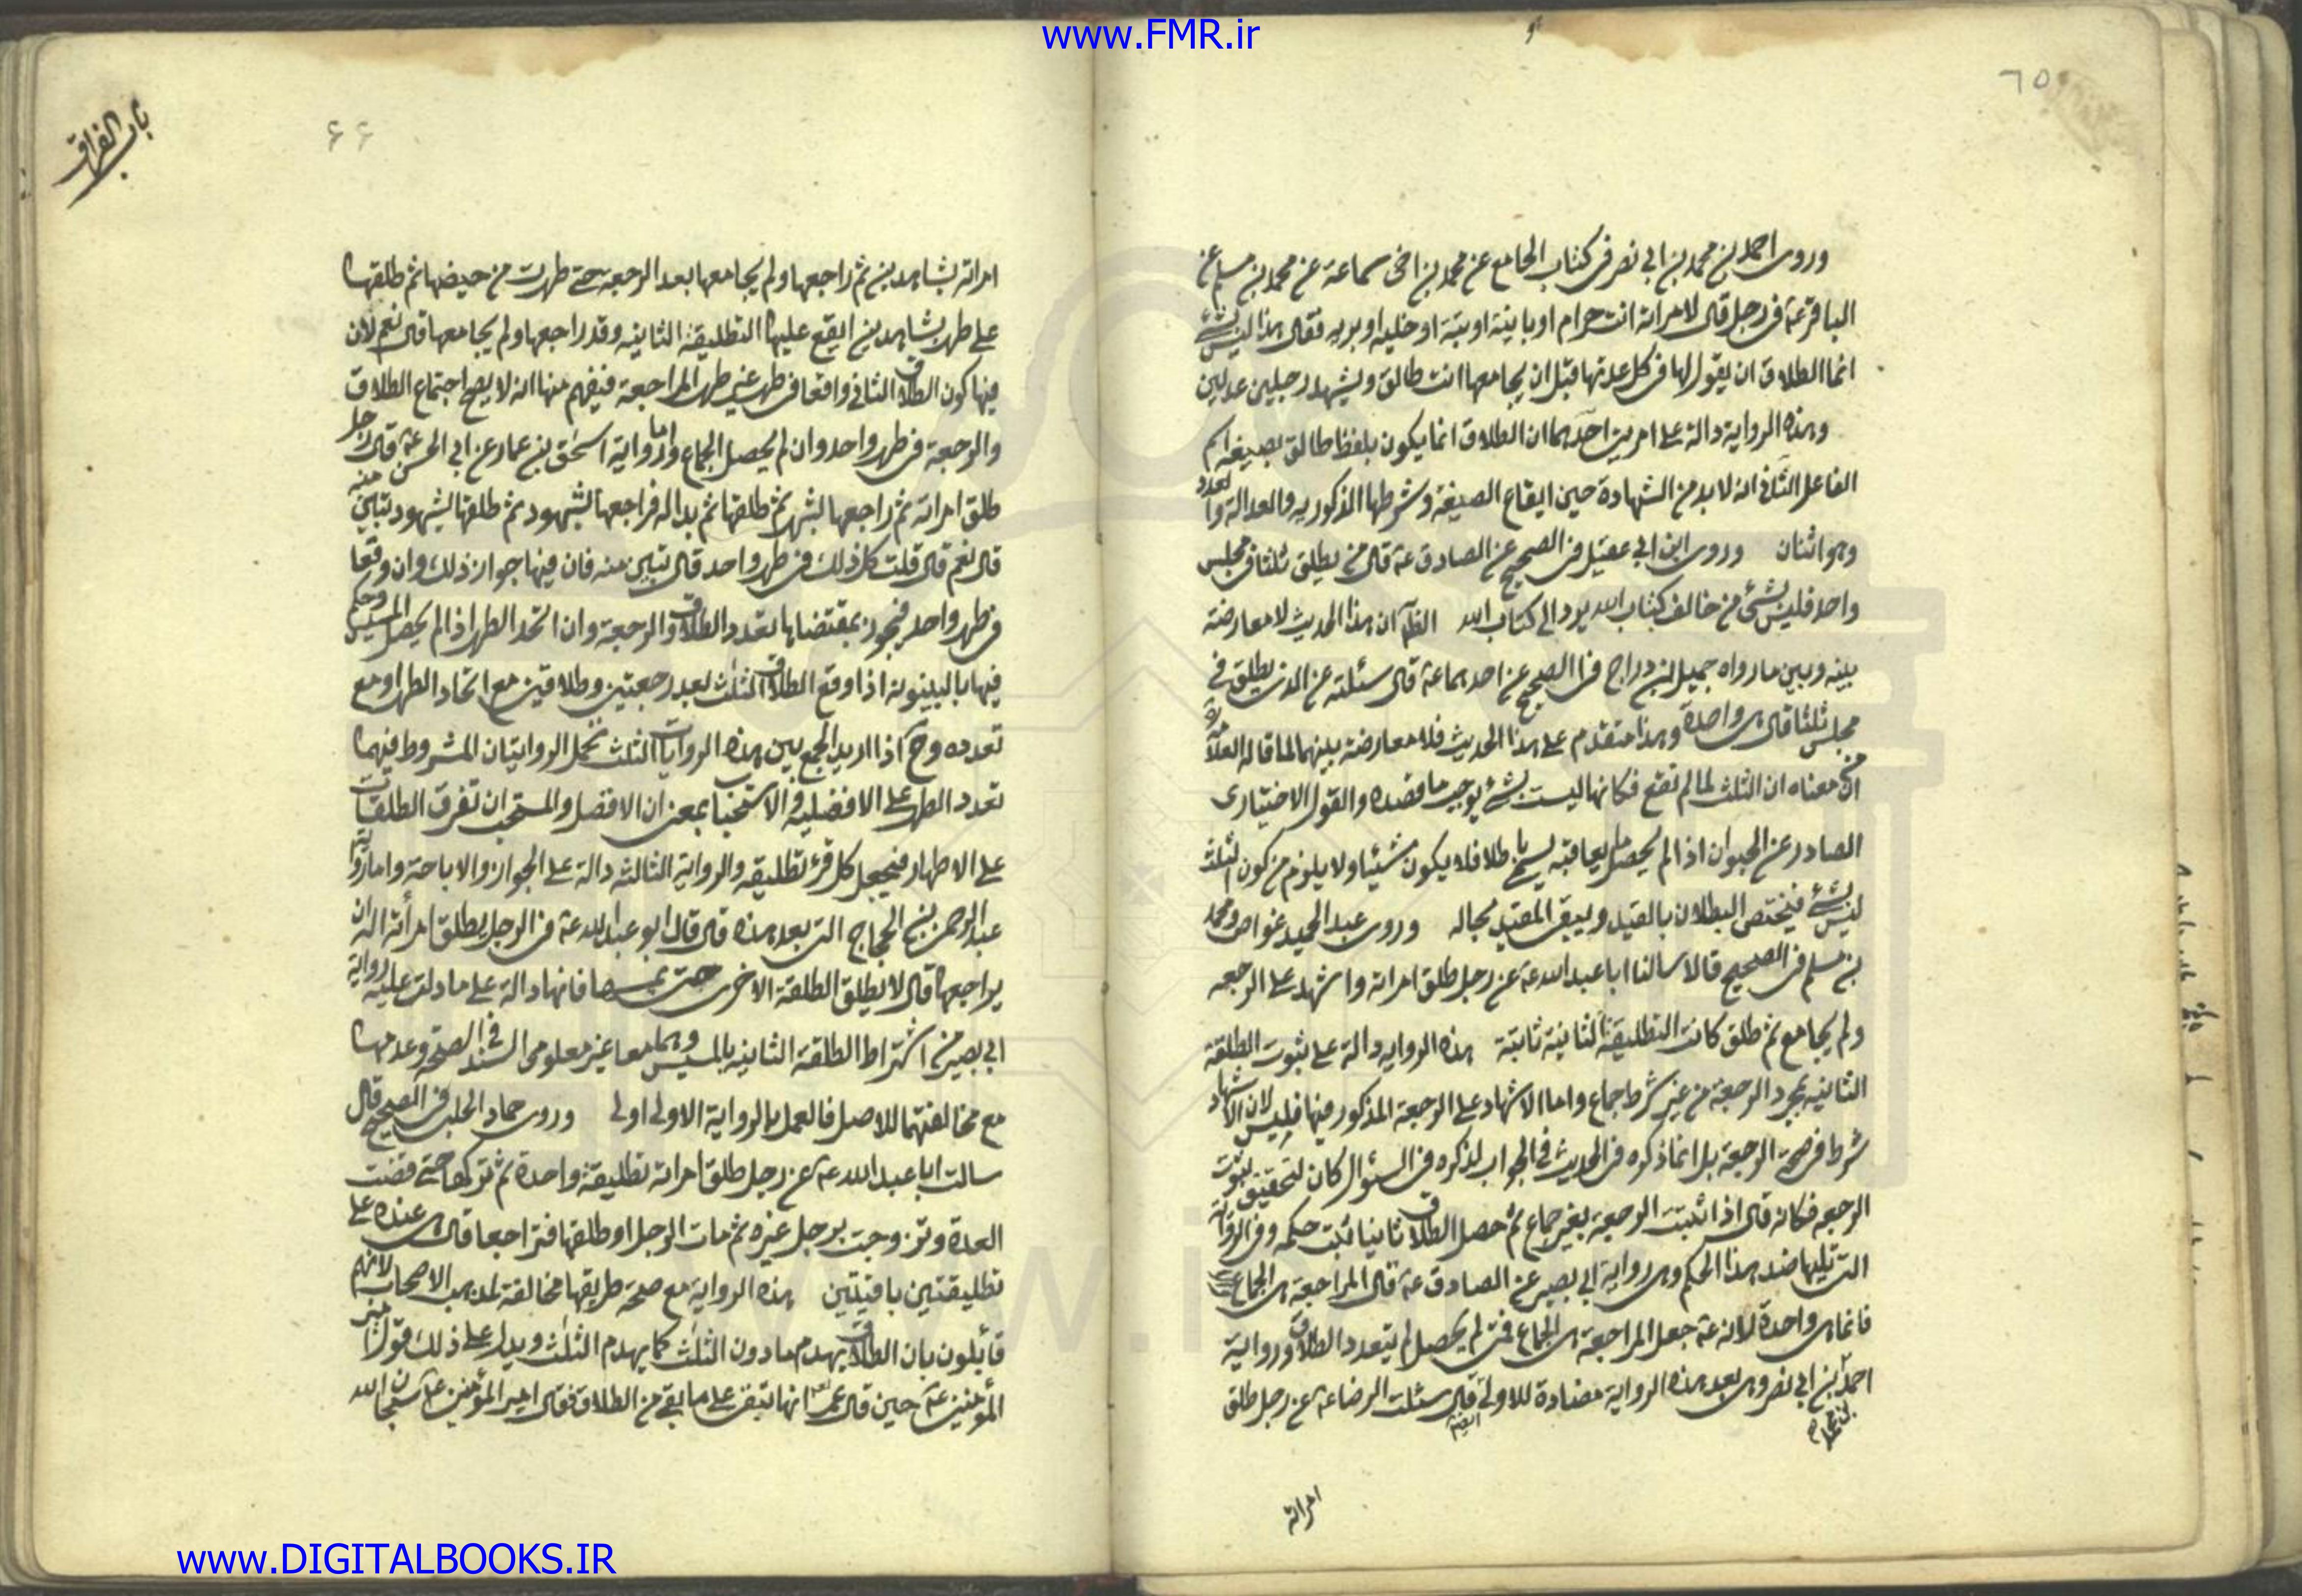 www.FMR.ir
٦٥
وروى احمد بن محمد بن ابي نصر فى كتاب الجامع عن محمد بن اخى سماعة عن محمد بن مسلم عن
الباقر ع فى رجل قال لامراته انت حرام او باينة او بتة او خلية او برية فقال هذا ليس بشئ
انما الطلاق ان يقول لها فى كل عدتها قبل ان يجامعها انت طالق ويشهد رجلين عدلين
وهذه الرواية دالة على امرين احدهما ان الطلاق انما يكون بلفظ طالق بصيغة اسم
الفاعل الثانى انه لا بد من الشهادة حين ايقاع الصيغة وشرطها المذكورية والعدالة والعدد
وهو اثنان وروى ابن ابي عقيل فى الصحيح عن الصادق ع قال من يطلق ثلثا فى مجلس
واحد فليس بشئ من خالف كتاب الله يرد الى كتاب الله الظ ان هذا الحديث لا معارضة
بينه وبين ما رواه جميل بن دراج فى الصحيح عن احدهما ع قال سئلته عن الذى يطلق فى
مجلس ثلثا قال هى واحدة وهذا متقدم على هذا الحديث فلا معارضة بينهما لما قاله العلامة
من ان معناه ان الثلث لما لم تقع فكانها ليست بشئ يوجب ما قصده والقول الاختيارى
الصادر عن الحيوان اذا لم يحصل ما يعاقبه يسمى باطلا فلا يكون شيئا ولا يلزم من كون الثلث
ليس بشئ فيختص البطلان بالقيد ويبقى المقيد بحاله وروى عبد الحميد غواص ومحمد
بن مسلم فى الصحيح قالا سالنا ابا عبد الله ع عن رجل طلق امراته واشهد على الرجعه
ولم يجامع ثم طلق كانت التطليقة الثانية ثابتة هذه الرواية دالة على ثبوت الطلقة
الثانية بمجرد الرجعة من غير شرط جماع واما الاشهاد على الرجعة المذكور فيها فليس لان الاشهاد
شرط فى صحة الرجعة بل انما ذكره فى الحديث فى الجواب لذكره فى السئوال كان لتحقيق ثبوت
الرجعه فكانه قال اذا ثبتت الرجعة بغير جماع ثم حصل الطلاق ثانيا ثبت حكمه وفى الرواية
التى تليها ضد هذا الحكم وهى رواية ابي بصير عن الصادق ع قال المراجعة هى الجماع
فانما هى واحدة لانه ع جعل المراجعة هى الجماع فمتى لم يحصل لم يتعدد الطلاق ورواية
احمد بن ابي نصر وهى بعد هذه الرواية مضادة للاولى قال سئلت الرضا ع عن رجل طلق
بن محمد
ايضا
امراته
باب الفراق
۶۶
امراته بشاهدين ثم راجعها ولم يجامعها بعد الرجعة حتى طهرت من حيضها ثم طلقها
على طهر بشاهدين ايقع عليها التطليقة الثانية وقد راجعها ولم يجامعها قال نعم لان
فيها كون الطلاق الثانى واقعا فى طهر غير طهر المراجعة فيفهم منها انه لا يصح اجتماع الطلاق
والرجعة فى طهر واحد وان لم يحصل الجماع واما رواية اسحق بن عمار عن ابي الحسن ع قال رجل
طلق امراته ثم راجعها بشهود ثم طلقها ثم بدا له فراجعها بشهود ثم طلقها بشهود تبين منه
قال نعم قال قلت كل ذلك فى طهر واحد قال تبين منه فان فيها جواز ذلك وان وقعا
فى طهر واحد فيجوز بمقتضاها تعدد الطلاق والرجعة وان اتحد الطهر اذا لم يحصل المسيس وحكم
فيها بالبينونة اذا وقع الطلاق الثلث بعد رجعتين وطلاقين مع اتحاد الطهر او مع
تعدده وح اذا اريد الجمع بين هذه الروايات الثلث تحمل الروايتان المشروط فيهما
تعدد الطهر على الافضلية والاستحباب بمعنى ان الافضل والمستحب ان تفرق الطلقات
على الاطهار فيجعل كل قرؤ تطليقة والرواية الثالثة دالة على الجواز والاباحة واما رواية
عبد الرحمن بن الحجاج التى بعد هذه قال قال ابو عبد الله ع فى الرجل يطلق امرأته اله ان
يراجعها قال لا يطلق الطلقة الاخرى حتى يمسها فانها دالة على ما دلت عليه رواية
ابي بصير من اشتراط الطلقة الثانية بالمسيس وهما معا غير معلومى السند فى الصحة وعدمها
مع مخالفتهما للاصل فالعمل بالرواية الاولى اولى وروى حماد الحلبى فى الصحيح قال
سالت ابا عبد الله ع عن رجل طلق امراته تطليقة واحدة ثم تركها حتى قضت
العدة وتزوجت برجل غيره ثم مات الرجل او طلقها فتراجعا قال هى عنده على
تطليقتين باقيتين هذه الرواية مع صحة طريقها مخالفة لمذهب الاصحاب لانهم
قائلون بان الطلاق يهدم ما دون الثلث كما يهدم الثلث ويدل على ذلك قول امير
المؤمنين ع حين قال عمر انها تبقى على ما بقى من الطلاق فقال امير المؤمنين ع سبحان الله
www.DIGITALBOOKS.IR